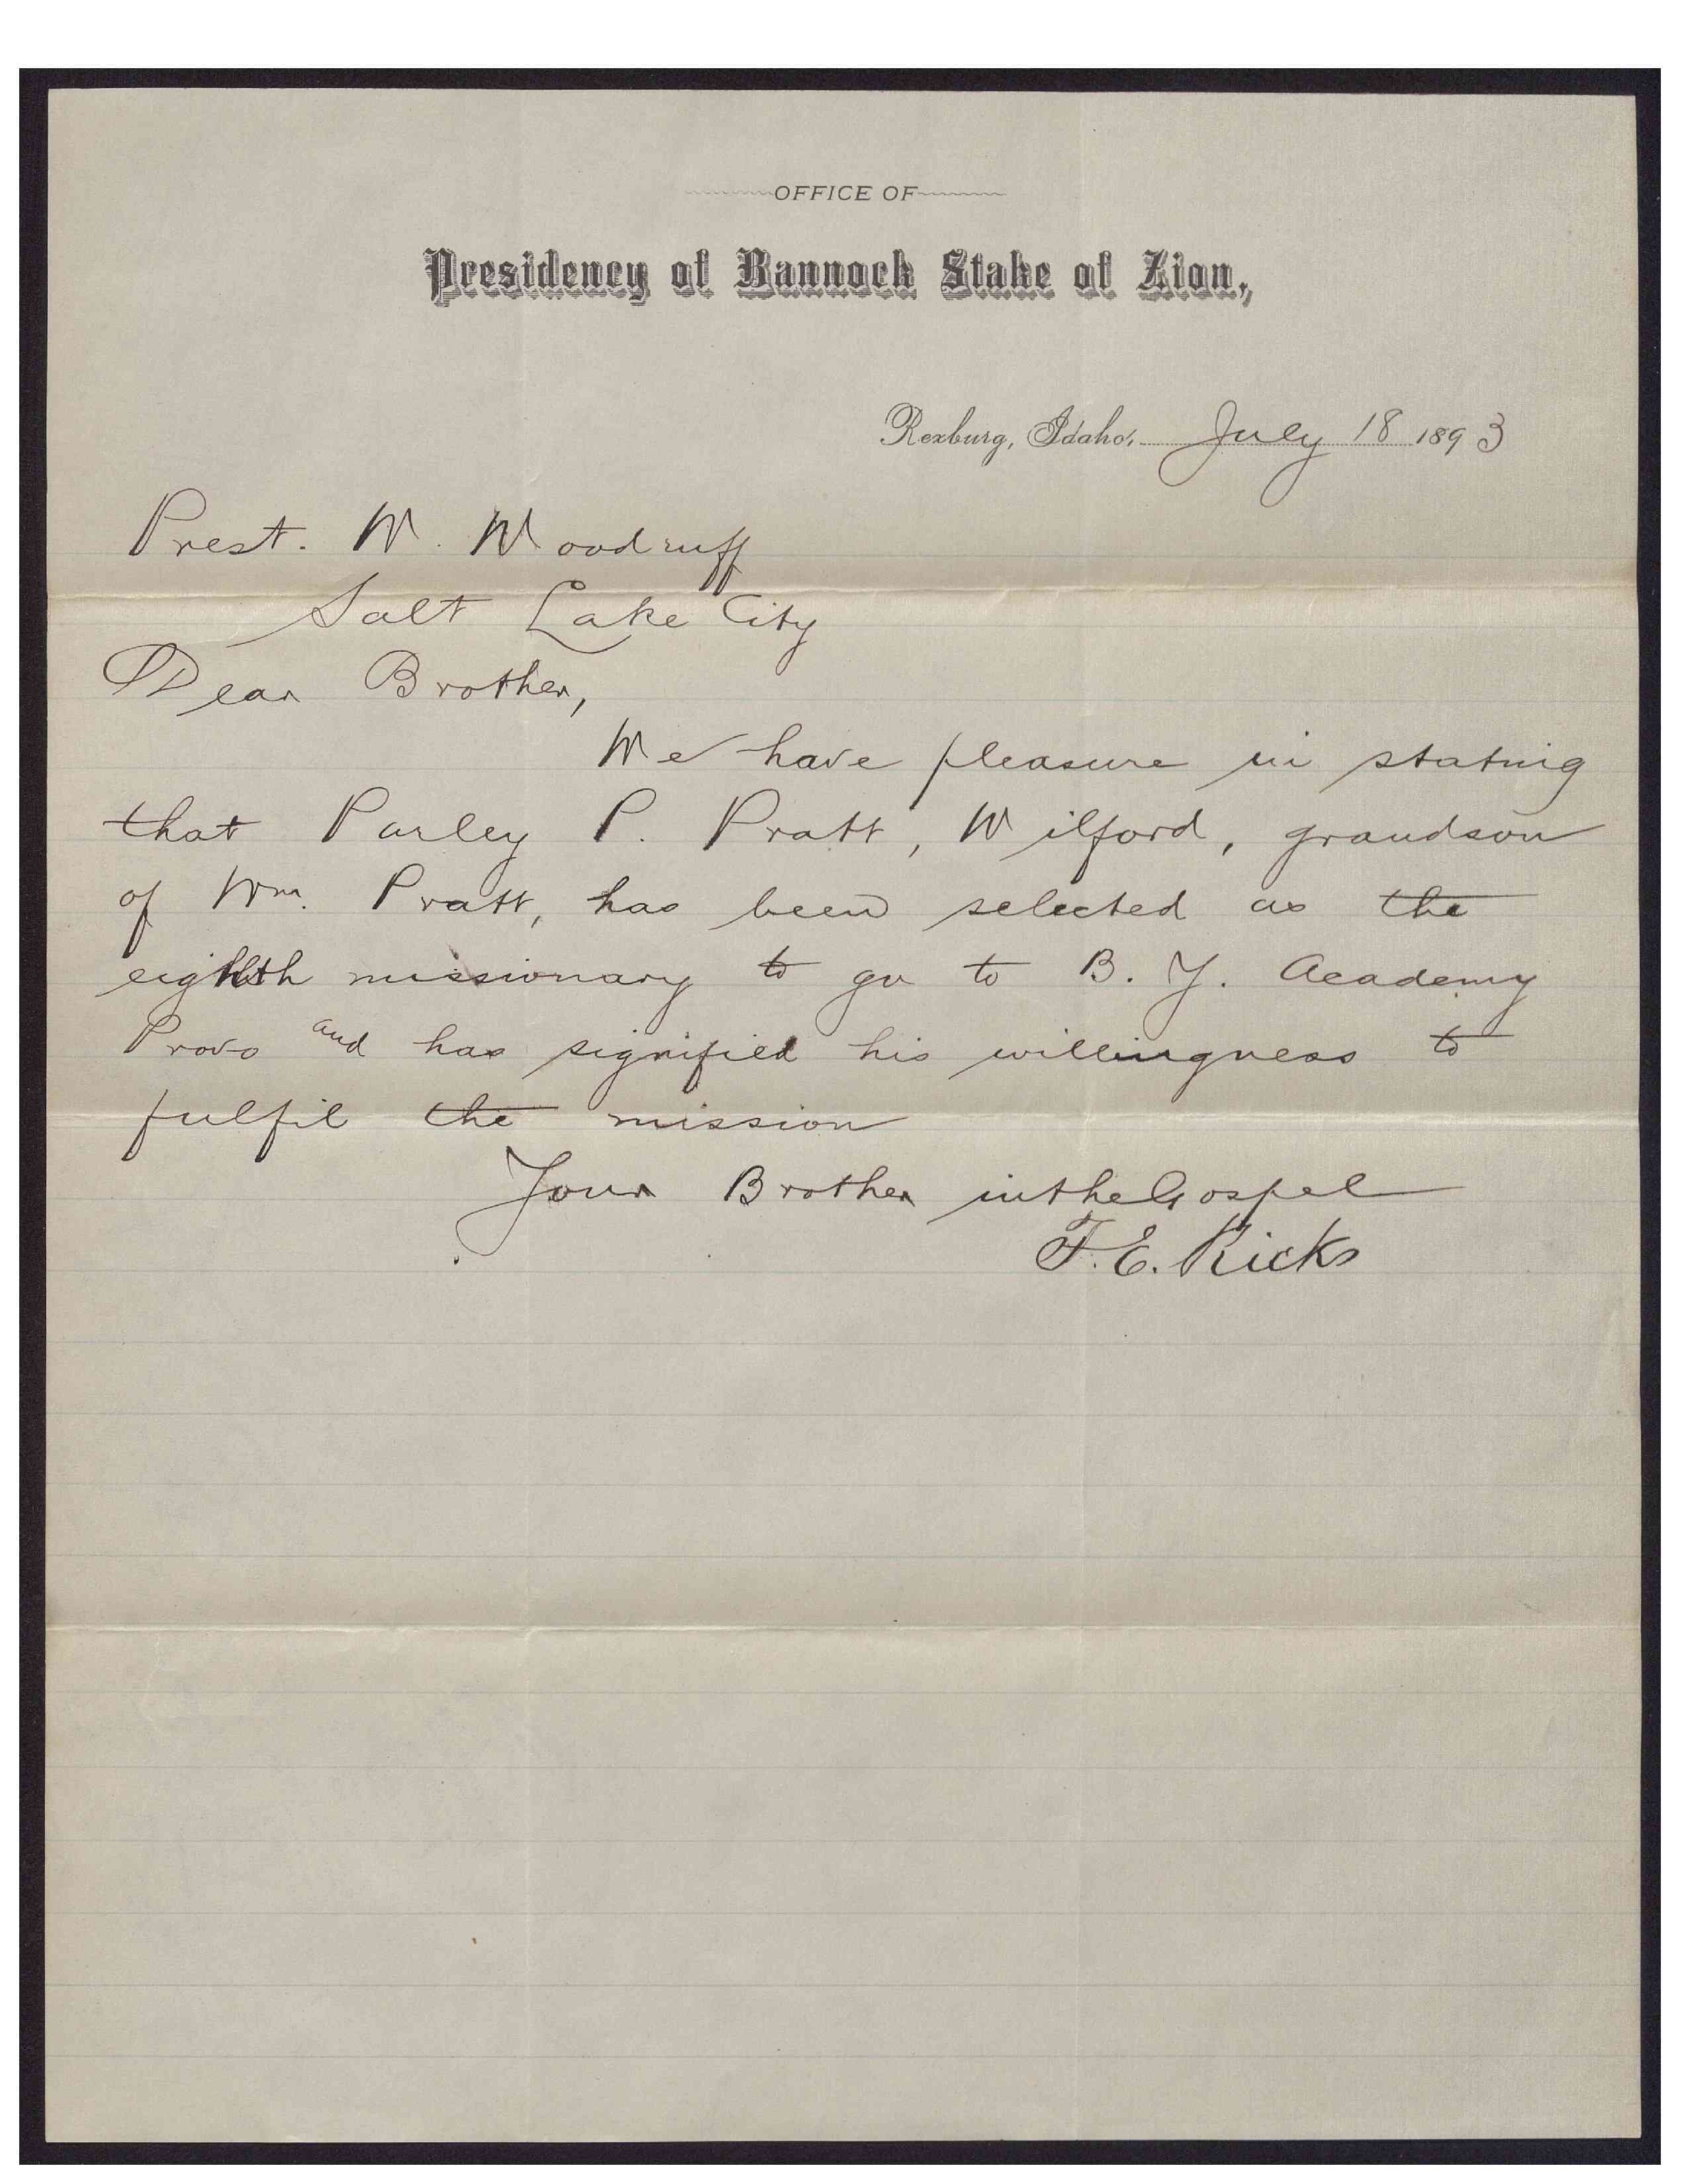 OFFICE OF
Presidency of Bannock Stake of Zion,
Rexburg, Idaho, July 18 1893
Prest. W. Woodruff
Salt Lake City
Dear Brother,
We have pleasure in stating
that Parley P. Pratt, Wilford, grandson
of Wm. Pratt, has been selected as the
eighth missionary to go to B. Y. Academy
Provo and has signified his willingness to
fulfil the mission
Your Brother in the Gospel
T. E. Ricks